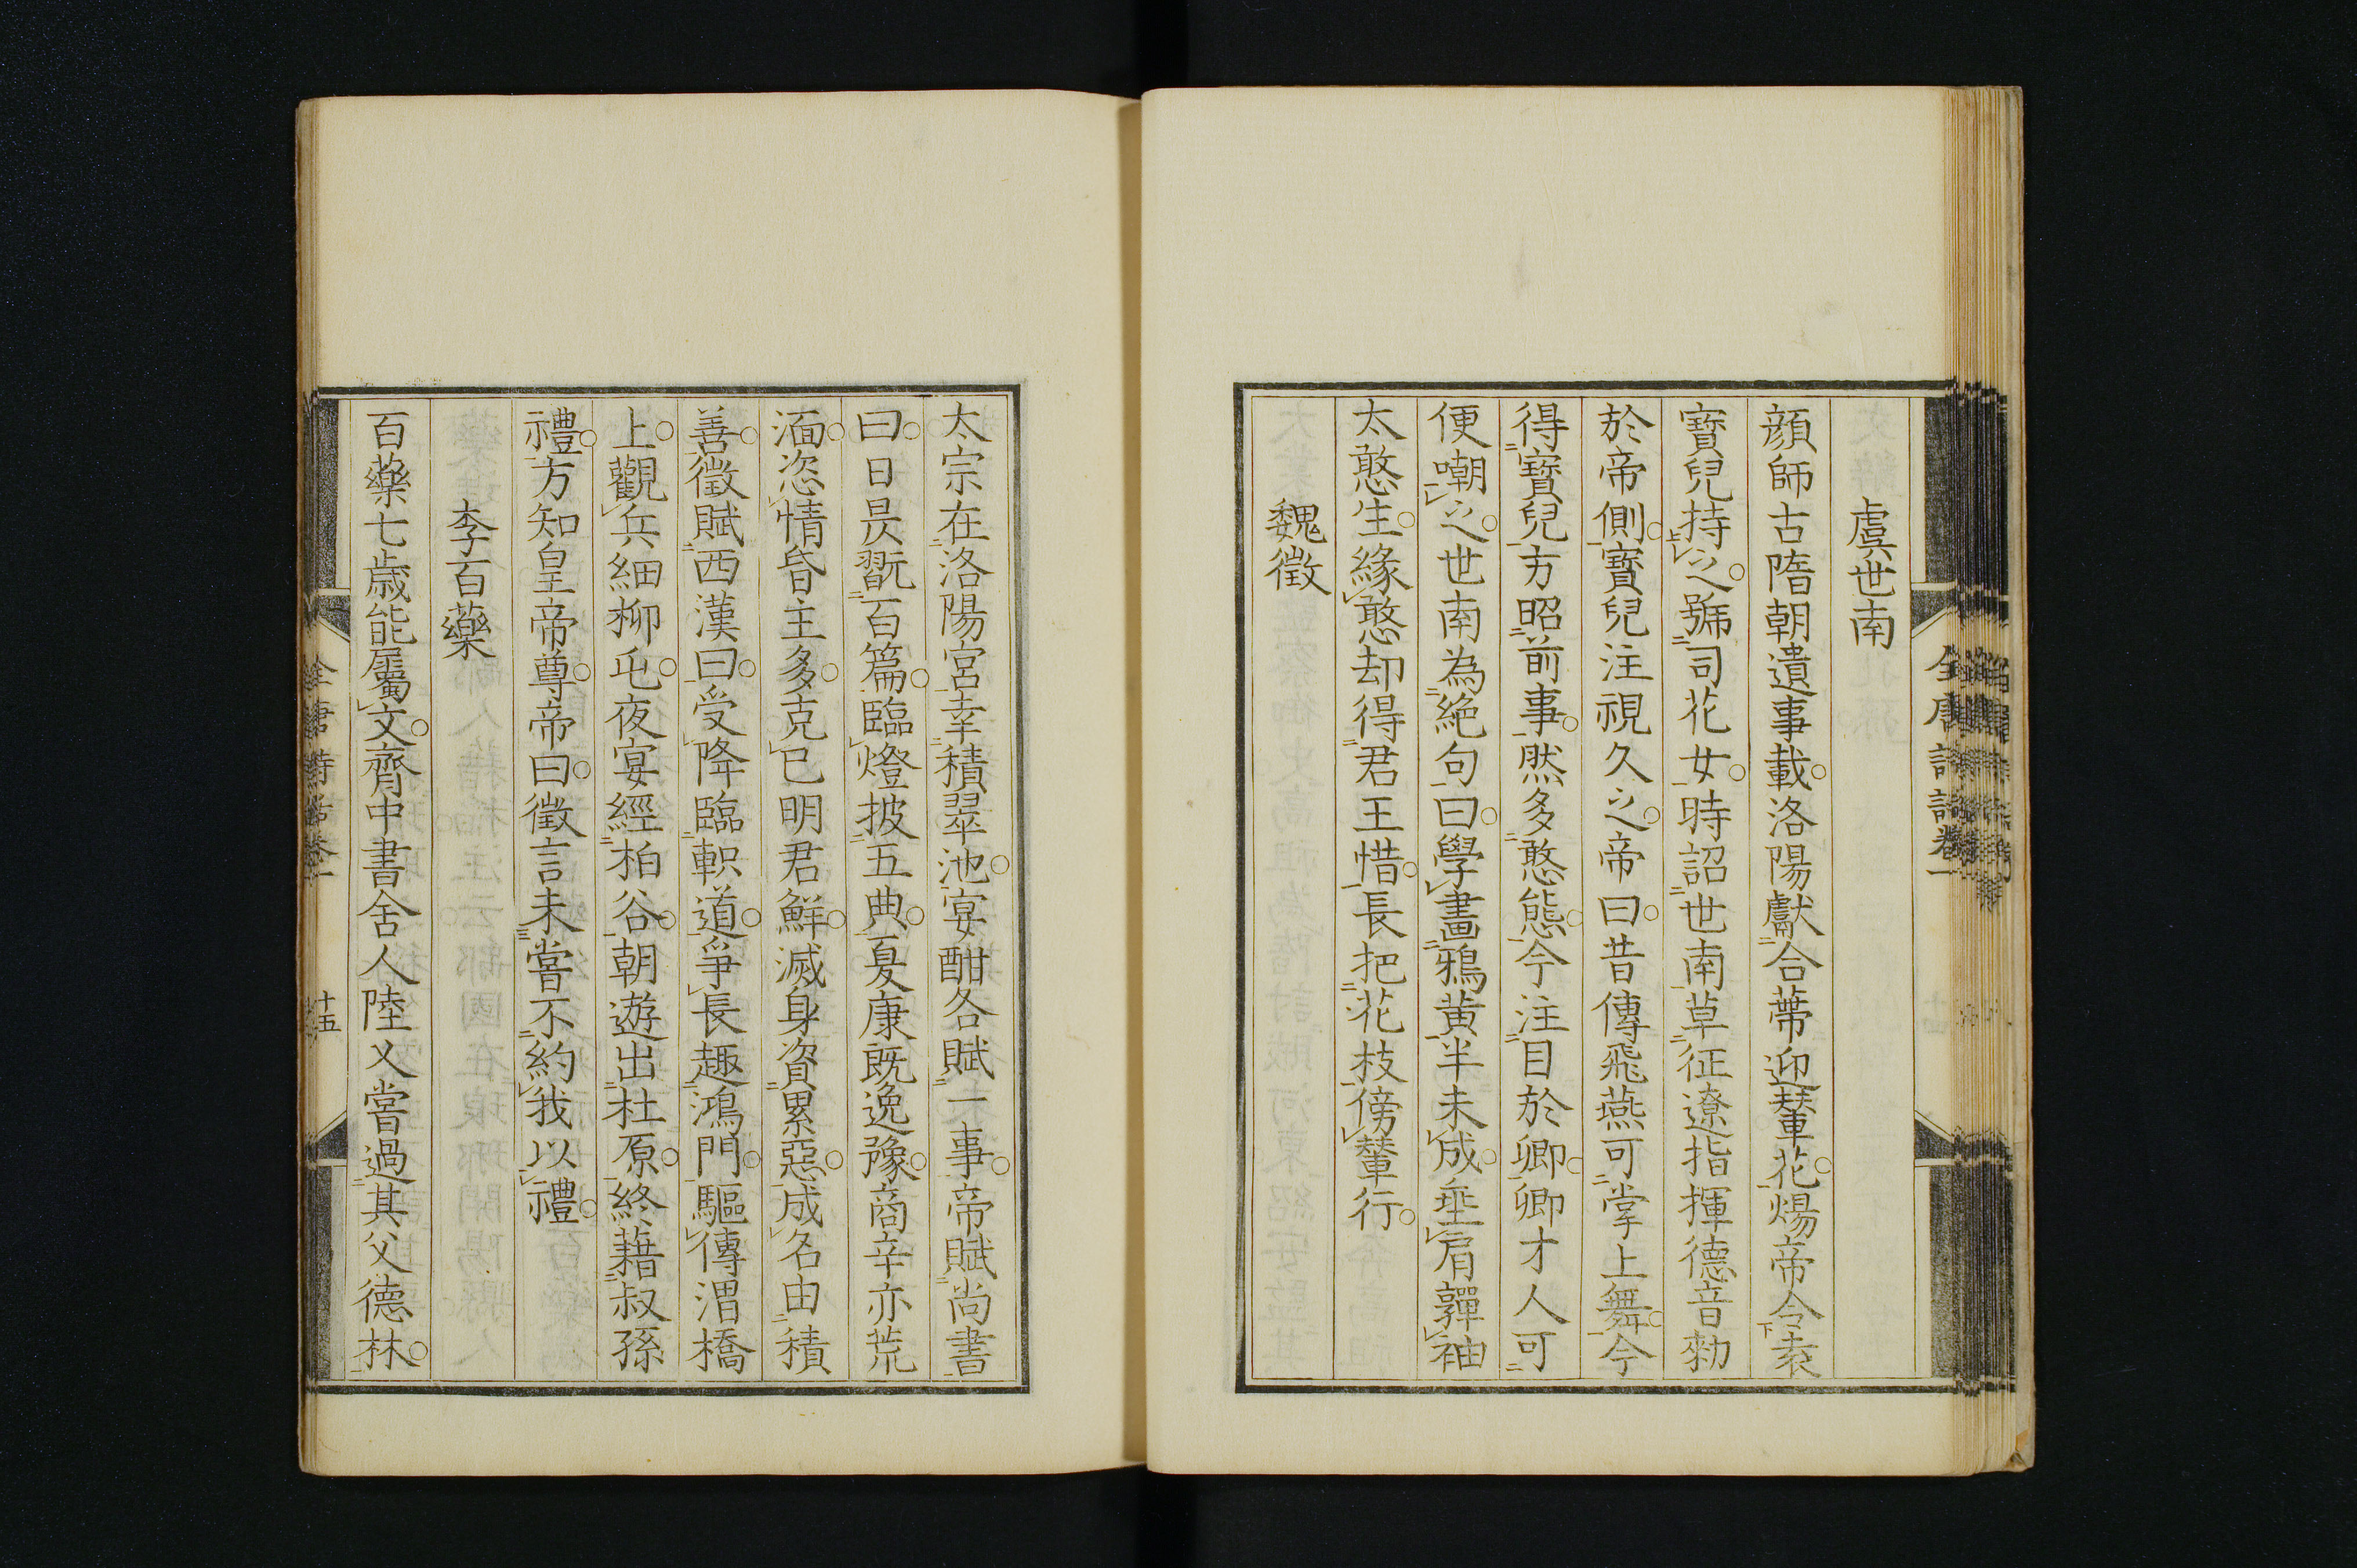 虞世南
顔師古隋朝遺事載洛陽獻合蔕迎輦花煬帝令袁
寶兒持之號司花女時詔世南草征遼指揮德音勑
於帝側寶兒注視久之帝曰昔傳飛燕可掌上舞今
得寶兒方昭前事然多憨態今注目於卿卿才人可
便嘲之世南為絶句曰學畫鴉黄半未成垂肩嚲袖
太憨生緣憨却得君王惜長把花枝傍輦行
魏徵
太宗在洛陽宮幸積翠池宴酣各賦一事帝賦尚書
曰日昃翫百篇臨燈披五典夏康既逸豫商辛亦荒
湎恣情昏主多克已明君鮮滅身資累惡成名由積
善徵賦西漢曰受降臨軹道爭長趣鴻門驅傳渭橋
上觀兵細柳屯夜宴經柏谷朝遊出杜原終藉叔孫
禮方知皇帝尊帝曰徵言未嘗不約我以禮
李百藥
百藥七歲能屬文齊中書舍人陸乂嘗過其父德林
全唐詩話卷一
十五